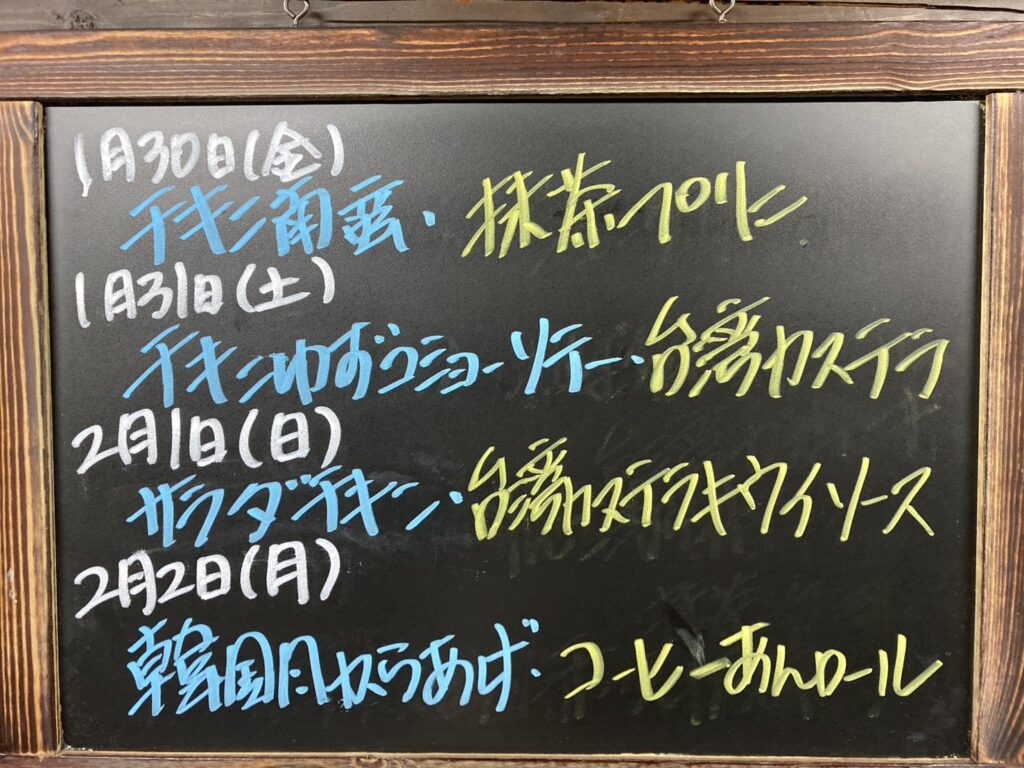 1月30日(金)
チキン南蛮・抹茶プリン
1月31日(土)
チキンゆずジンジャーソテー・台湾カステラ
2月1日(日)
サラダチキン・台湾カステラキウイソース
2月2日(月)
韓国風からあげ・コーヒーあんロール